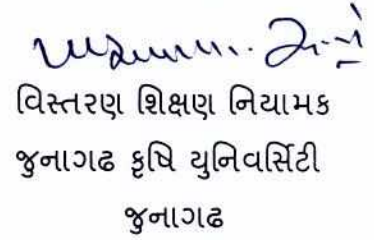 વિસ્તરણ શિક્ષણ નિયામક
જુનાગઢ કૃષિ યુનિવર્સિટી
જુનાગઢ